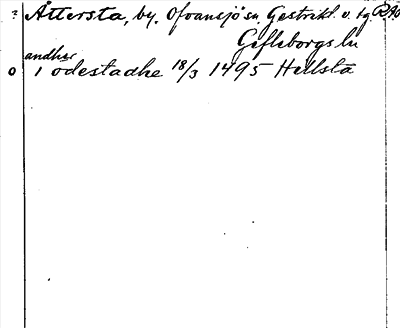 ? Åttersta, by. Ofvansjö sn. Gestrikl. v. tg. RAO
Gefleborgs län
andher
0 i odestadhe 18/3 1495 Hellsta